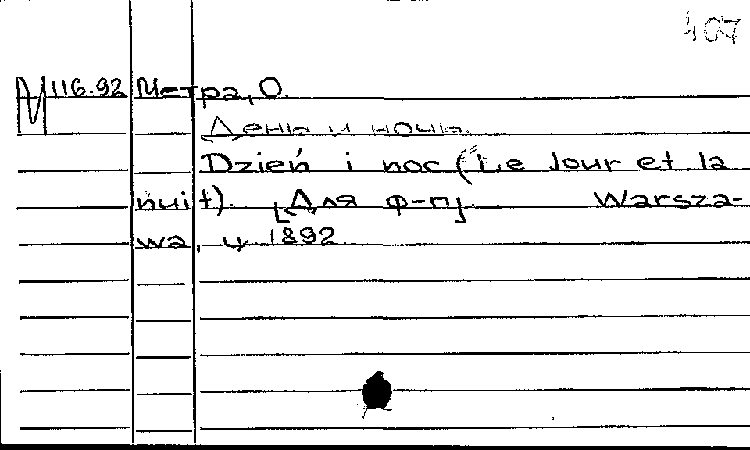 407
М 116.92 Метра, О.
День и ночь.
Dzień i noc (Le Jour et la
nuit). [Для ф-п] Warsza-
wa, ц. 1892